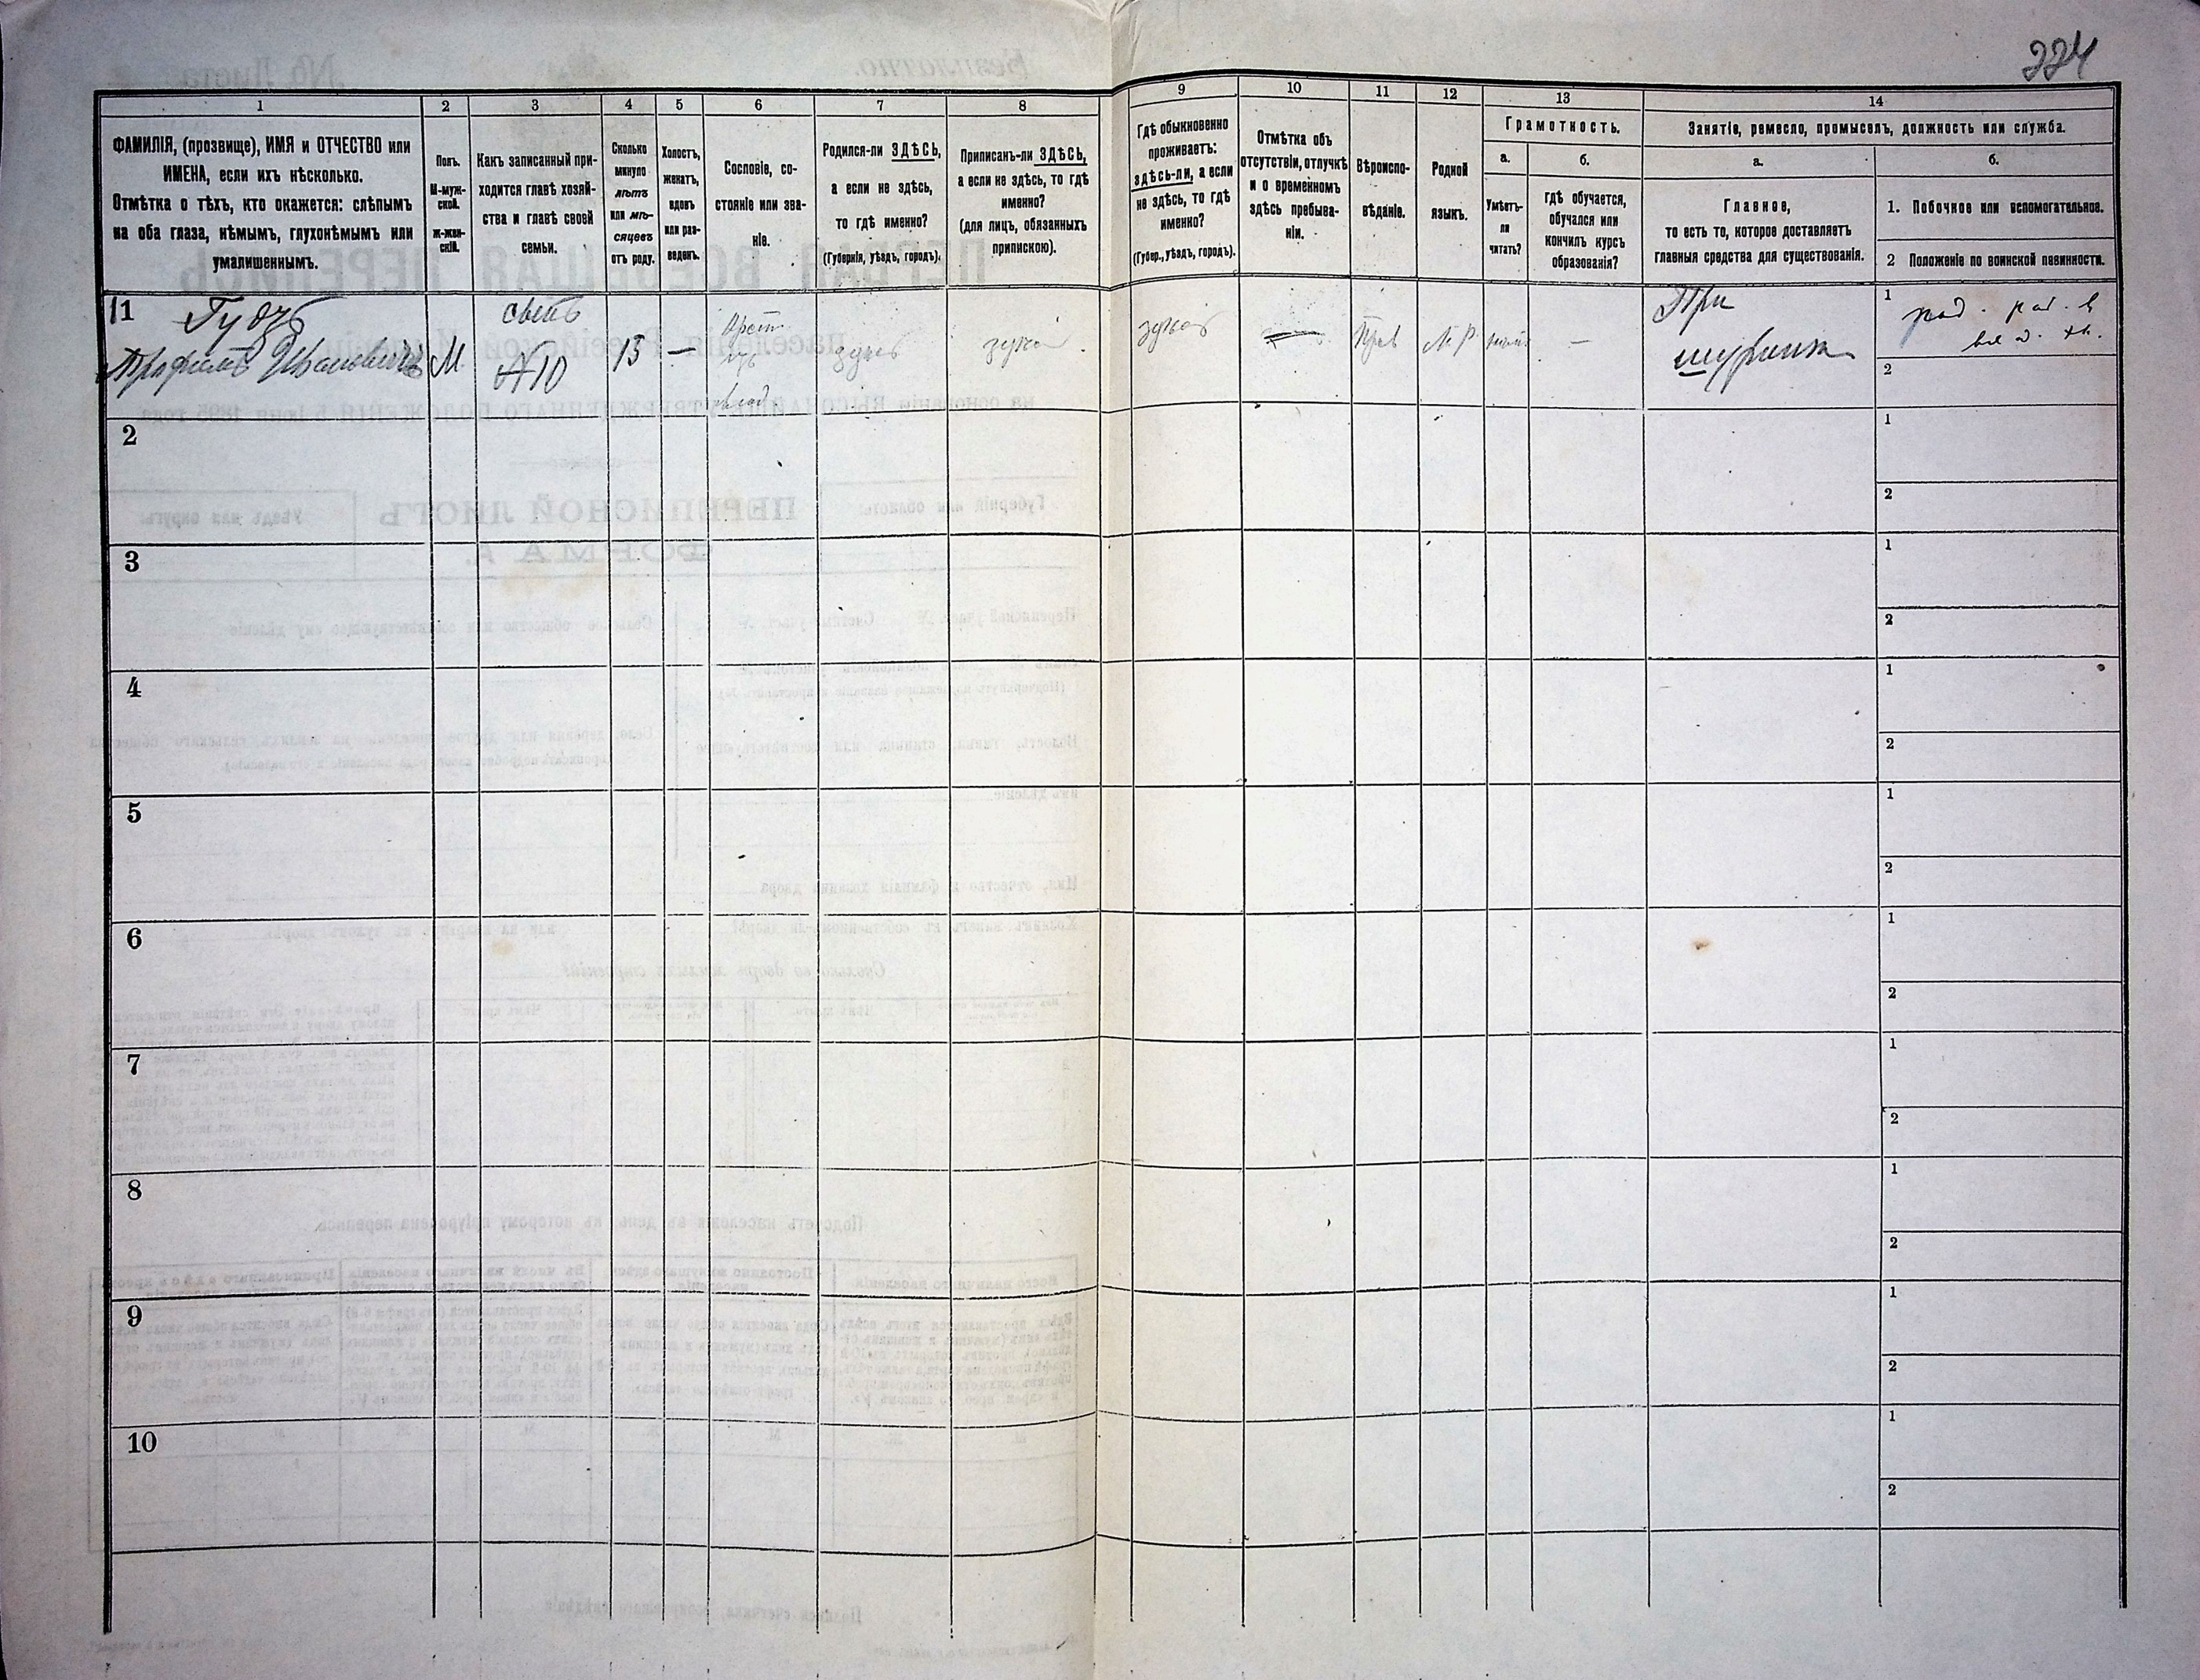 224
1
ФАМИЛІЯ, (прозвище), ИМЯ и ОТЧЕСТВО или
ИМЕНА, если ихъ нѣсколько.
Отмѣтка о тѣхъ, кто окажется: слѣпымъ
на оба глаза, нѣмымъ, глухонѣмымъ или
умалишеннымъ.
2
Полъ.
М-муж-
ской.
ж-жен-
скій.
3
Какъ записанный при-
ходится главѣ хозяй-
ства и главѣ своей
семьи.
4
Сколько
минуло
лѣтъ
или мѣ-
сяцевъ
отъ роду.
5
Холостъ,
женатъ,
вдовъ
или раз-
веденъ.
6
Сословіе, со-
стояніе или зва-
ніе.
7
Родился-ли ЗДѢСЬ,
а если не здѣсь,
то гдѣ именно?
(Губернія, уѣздъ, городъ).
8
Приписанъ-ли ЗДѢСЬ,
а если не здѣсь, то гдѣ
именно?
(для лицъ, обязанныхъ
припискою).
9
Гдѣ обыкновенно
проживаетъ:
здѣсь-ли, а если
не здѣсь, то гдѣ
именно?
(Губер., уѣздъ, городъ).
10
Отмѣтка объ
отсутствіи, отлучкѣ
и о временномъ
здѣсь пребыва-
ніи.
11
Вѣроиспо-
вѣданіе.
12
Родной
языкъ.
13
Грамотность.
а.
Умѣетъ-
ли
читать?
б.
гдѣ обучается,
обучался или
кончилъ курсъ
образованія?
14
Занятіе, ремесло, промыселъ, должность или служба.
а.
Главное,
то есть то, которое доставляетъ
главныя средства для существованія.
б.
1. Побочное или вспомогательное.
2 Положеніе по воинской повинности.
11
Гудзь
Трофимъ Ивановичъ
М.
сынъ
№10
13
—
Крест.
влад.
здѣсь
здѣсь
здѣсь
Прав
М. Р.
—
При
1
2
2
1
2
3
1
2
4
1
2
5
1
2
6
1
2
7
1
2
8
1
2
9
1
2
10
1
2